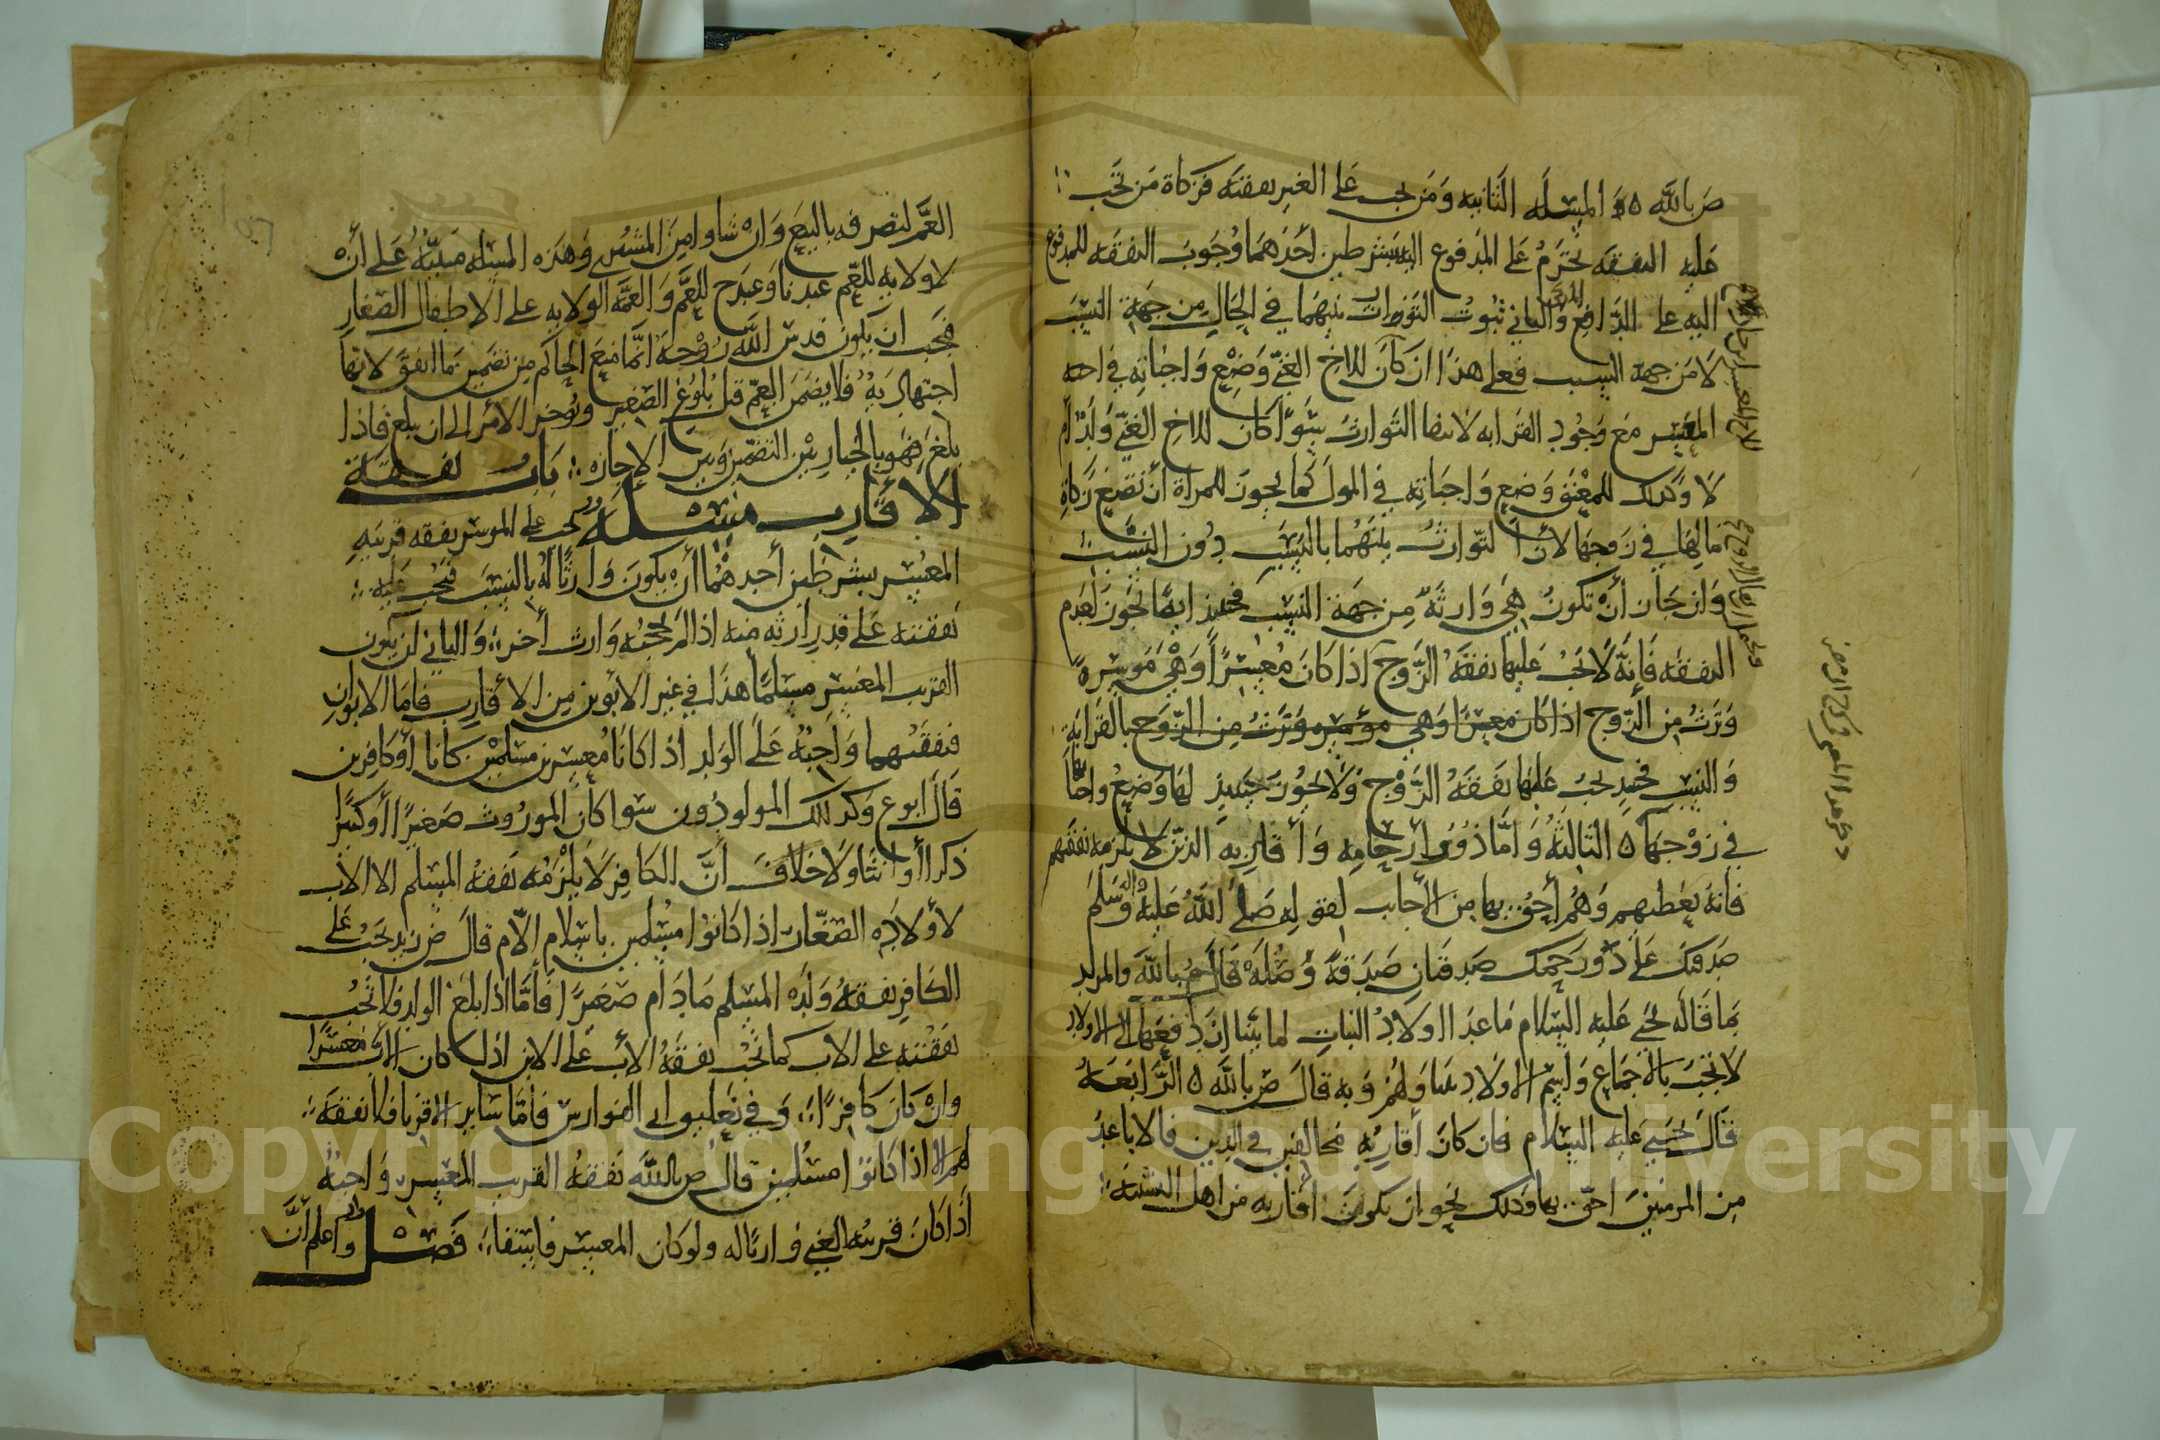 ص بالله ٥ المسله الثانيه ومن يجب على الغير نفقته فزكاة من تجب
عليه النفقه تحرم على المدفوع اليه بشرطين احدهما وجوب النفقه للمدفوع
اليه على الدافع والثاني ثبوت التوارث بينهما في الحال من جهة النسب
لا من جهة السبب فعلى هذا ان كان للاخ الغني وضع واجباته في اخيه
المعسر مع وجود القرابه لا سفا التوارث سوا كان للاخ الغني ولد أم
لا وكذلك للمعتق وضع واجباته في المولى كما يجوز للمراة أن تضع زكاة
مالها في زوجها لأن التوارث بينهما بالسبب دون النسب
وان جاز أن تكون هي وارثة من جهة النسب فحينئذ ايضا تجوز لعدم
النفقه فانه لا تجب عليها نفقة الزوج اذا كان معسرا وهي موسرة
وترث من الزوج اذا كان معسرا وهي موسره وترث من الزوج بالقرابة
والنسب فحينئذ تجب عليها نفقة الزوج ولا يجوز حينئذ لها وضع واجباتها
في زوجها ٥ الثالثة وأما ذوو أرحامه وأقاربه الذين لا يلزمه نفقتهم
فانه يعطيهم وهم أحق بها من الأجانب لقوله صلى الله عليه واله وسلم
صدقتك على ذي رحمك صدقتان صدقة وصلة قال ص بالله والمراد
بما قاله يحيى عليه السلام ما عدا اولاد البنات لما بينا ان دفعها الى الاولاد
لا تجب بالاجماع واسم الاولاد يتناولهم وبه قال ص بالله ٥ الرابعه
قال يحيى عليه السلام فان كان أقاربه مخالفين في الدين فالاباعد
من المومنين احق بها وذلك نحو ان يكون اقاربه من اهل
العم لتصرفه بالبيع وان شاوا من المشتري وهذه المسله مبنية على أن
لا ولايه للعم عندنا وعند ح للعم والعمة الولايه على الاطفال الصغار
فيجب ان يكون قدس الله روحه انما منع الحاكم من تضمين ما انفق لانها
اجتهاديه فلا يضمن العم قبل بلوغ الصغير ويوخر الامر الى ان يبلغ فاذا
بلغ فهو بالخيار بين التضمين وبين الاجازه باب نفقة
الأقارب مسئلة تجب على الموسر نفقه قريبه
المعسر بشرطين أحدهما أن يكون وارثا له بالنسب فتجب عليه
نفقته على قدر ارثه منه اذا لم يحجبه وارث أخر والثاني ان يكون
القريب المعسر مسلما هذا في غير الابوين من الأقارب فاما الابوان
فنفقتهما واجبة على الولد اذا كانا معسرين مسلمين كانا أو كافرين
قال ابو ع وكذلك المولودون سوا كان الموروث صغيرا أو كبيرا
ذكرا أو انثا ولا خلاف أن الكافر لا يلزمه نفقة المسلم الا الاب
لأولاده الصغار اذا كانوا مسلمين باسلام الأم قال ص زيد تجب على
الكافر نفقة ولده المسلم ما دام صغيرا فأما اذا بلغ الولد فلا تجب
نفقته على الاب كما تجب نفقة الأب على الابن اذا كان الاب معسرا
وان كان كافرا وفي تعليق ابي الفوارس فأما ساير الاقربا فلا نفقة
لهم الا اذا كانوا مسلمين قال ص بالله نفقة القريب المعسر واجبة
اذا كان قريبه الغني وارثا له ولو كان المعسر فاسقا فصل واعلم أن
Copyright © King Saud University